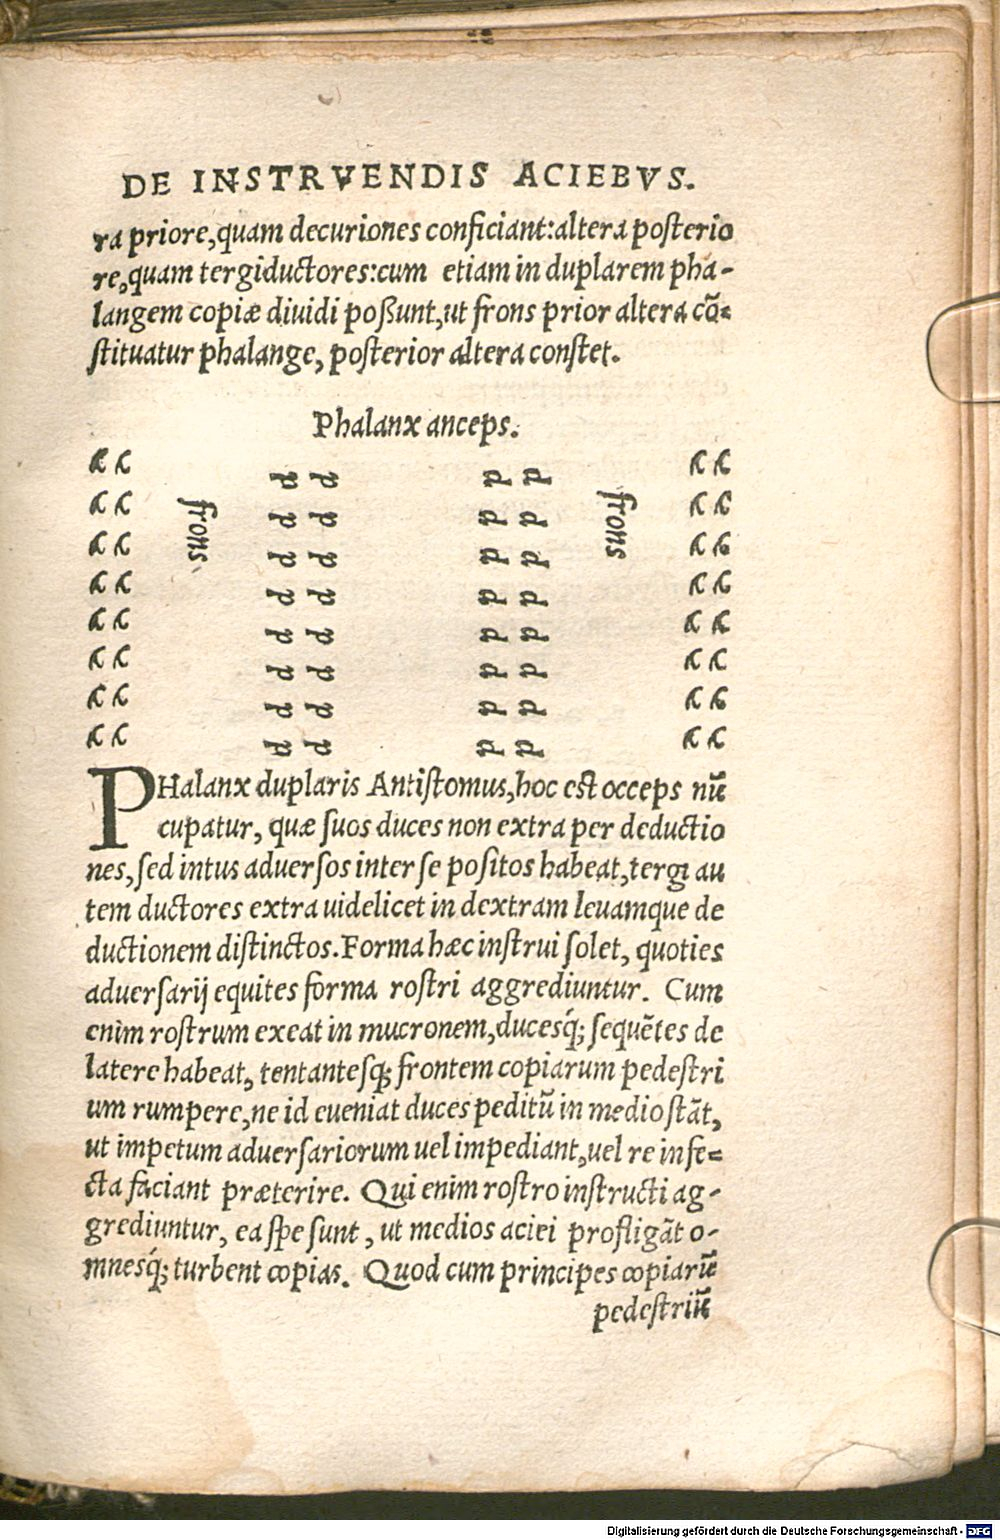 DE INSTRVENDIS ACIEBVS.
ra priore,quam decuriones conficiant:altera posterio
re,quam tergiductores:cum etiam in duplarem pha-
langem copiæ diuidi poßunt,ut frons prior altera cō-
stituatur phalange, posterior altera constet.
Phalanx anceps.
frons
frons
p p p p
p p p p
p p p p
p p p p
p p p p
p p p p
p p p p
p p p p
PHalanx duplaris Antistomus,hoc est occeps nū
cupatur, quæ suos duces non extra per deductio
nes, sed intus aduersos inter se positos habeat,tergi au
tem ductores extra uidelicet in dextram leuamque de
ductionem distinctos.Forma hæc instrui solet, quoties
aduersarij equites forma rostri aggrediuntur. Cum
enim rostrum exeat in mucronem,ducesq́; sequētes de
latere habeat, tentantesq; frontem copiarum pedestri
um rumpere,ne id eueniat duces peditū in medio stāt,
ut impetum aduersariorum uel impediant,uel re infe-
cta faciant præterire. Qui enim rostro instructi ag-
grediuntur, ea spe sunt, ut medios aciei profligāt o-
mnesq́; turbent copias. Quod cum principes copiarū
pedestriū
Digitalisierung gefördert durch die Deutsche Forschungsgemeinschaft - DFG